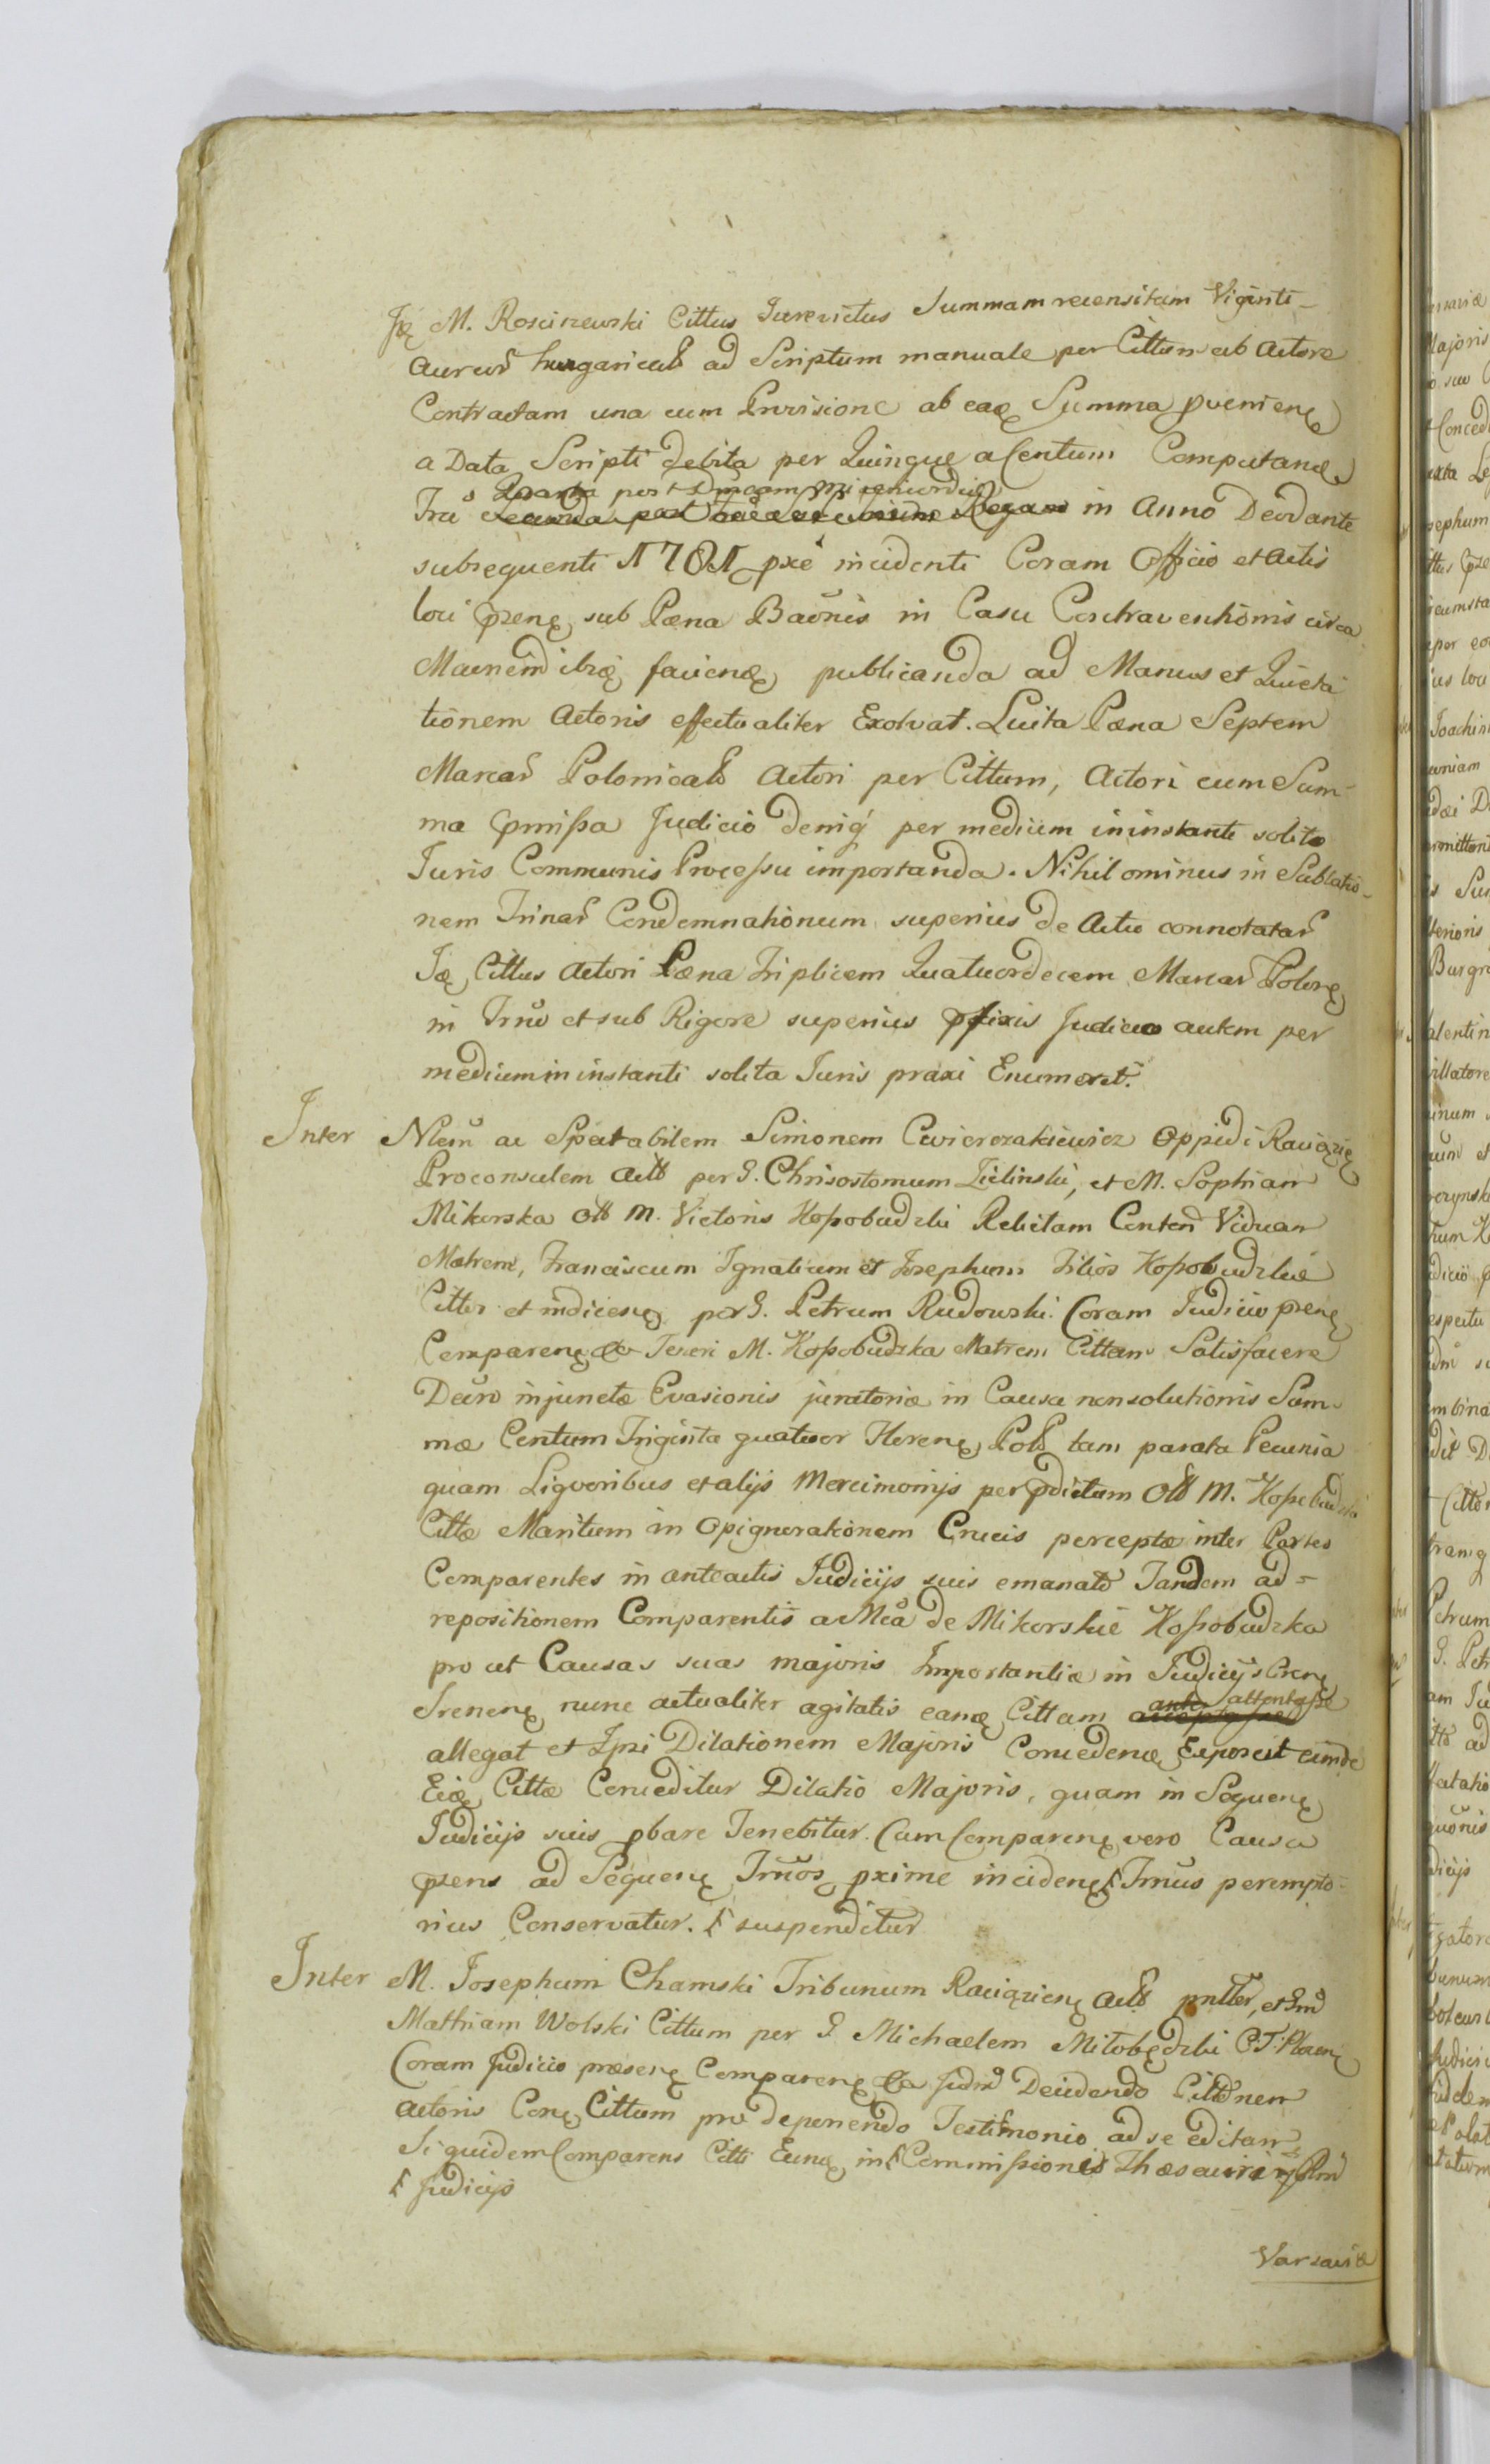 Ię M. Rosciszewski Cittus Iurevictus Summam recensitam Viginti
Aureor hungarical ad Scriptum manuale per Cittum ab Actore
Contractam una cum Provisione ab eaę Summa pvenienę
a Data Scripti debita per Quinque a Centum Computanę
Quarta post Dnicam Misericordię
Fra in Anno Deodante
subsequenti 1781 pxe incidenti Coram Officio et Actis
loci pzenę sub Pæna Baonis in Casu Contraventionis circa
Maenend ibię facienę publicanda ad Manus et Quieta
tionem Actoris effectualiter Exolvat. Luita Pæna Septem
Marcar Polonicall Actori per Cittum, Actori cum Sum-
ma pmissa Judicio deniq per medium in instanti solito
Iuris Communis Processu importanda. Nihilominus in Sublatio-
nem Trinar Condemnationum superius de Actu connotatar
Ię Cittus Actori Pæna Triplicem Quatuordecem Marcar Polonę
in Trno et sub Rigore superius pfixis Judicio autem per
medium in instanti solita Iuris praxi Enumeret.
Inter Nlem ac Spectabilem Simonem Cwierczakiewicz Oppidi Raciązię
Proconsulem Act per G. Chrisostomum Zielinski, et M. Sophiam
Mikorska Oll M. Victoris Kossobudzki Relictam Conten Viduam
Matrem, Franciscum Ignatium et Josephum Filios Kossobudzkie
Cittos et indicenę per G. Petrum Rudowski. Coram Judicio pzenę
Comparenę Teneri M. Kossobudzka Matrem Cittam Satisfacere
Decro injunctæ Evasionis juratoriæ in Causa non solutionis Sum-
mæ Centum Triginta quatuor Florenę Poll tam parata Pecunia
quam Liqvoribus et alijs Mercimonijs per pdictum Oll M. Kossobudzki
Cittæ Maritum in Opignorationem Crucis perceptæ inter Partes
Comparentes in anteactis Judicijs suis emanato Tandem ad-
repositionem Comparentis a Mca de Mikorskie Kossobudzka
pro ut Causas suas majoris Importantiæ in Judicijs
nunc actualiter agitatis eanę Cittam attentasse
allegat et Ipsi Dilationem Majoris Concedenę Exposcit eimde
Eię Cittæ Conceditur Dilatio Majoris, quam in Sequenę
Judicijs suis pbare Tenebitur. Cum Comparenę vero Causa
pzens ad Sequenę Trnos pxime incidenę Trnus perempto-
rius Conservatur. suspenditur
Inter M. Josephum Chamski Tribunum Raciązienę Act pntter, et Gnd
Mathiam Wolski Cittum per G Michaelem Miłobędzki
Coram Judicio præsenę Comparenę Judm Decidendo Cittonem
Actoris Conę Cittum pro deponendo Testimonio ad se editam
Siquidem Comparens Citti Eunę in Commissionis Thesauri
Judicijs
Varsaviæ